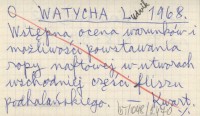 O WATYCHA L. 1968.
Wstępna ocena warunków i
możliwości powstawania
ropy naftowej w utworach
wschodniej części fliszu
podhalańskiego. — Kwart.